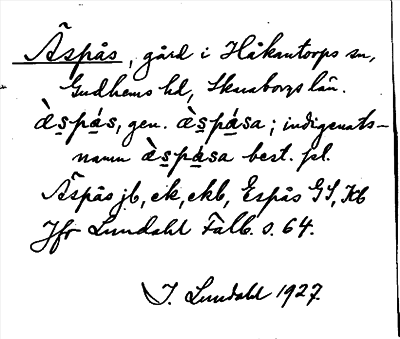 Äspås, gård i Håkantorps sn,
Gudhems hd, Skaraborgs län.
ä̀s̱pá̱s, gen. ä̀s̱pá̱sa; indigenats-
namn ä̀s̱pá̱sa best. pl.
Äspås jb, ek, ekb, Espås GS, Kb
Jfr Lundahl Falb. s. 64.
I. Lundahl 1927.